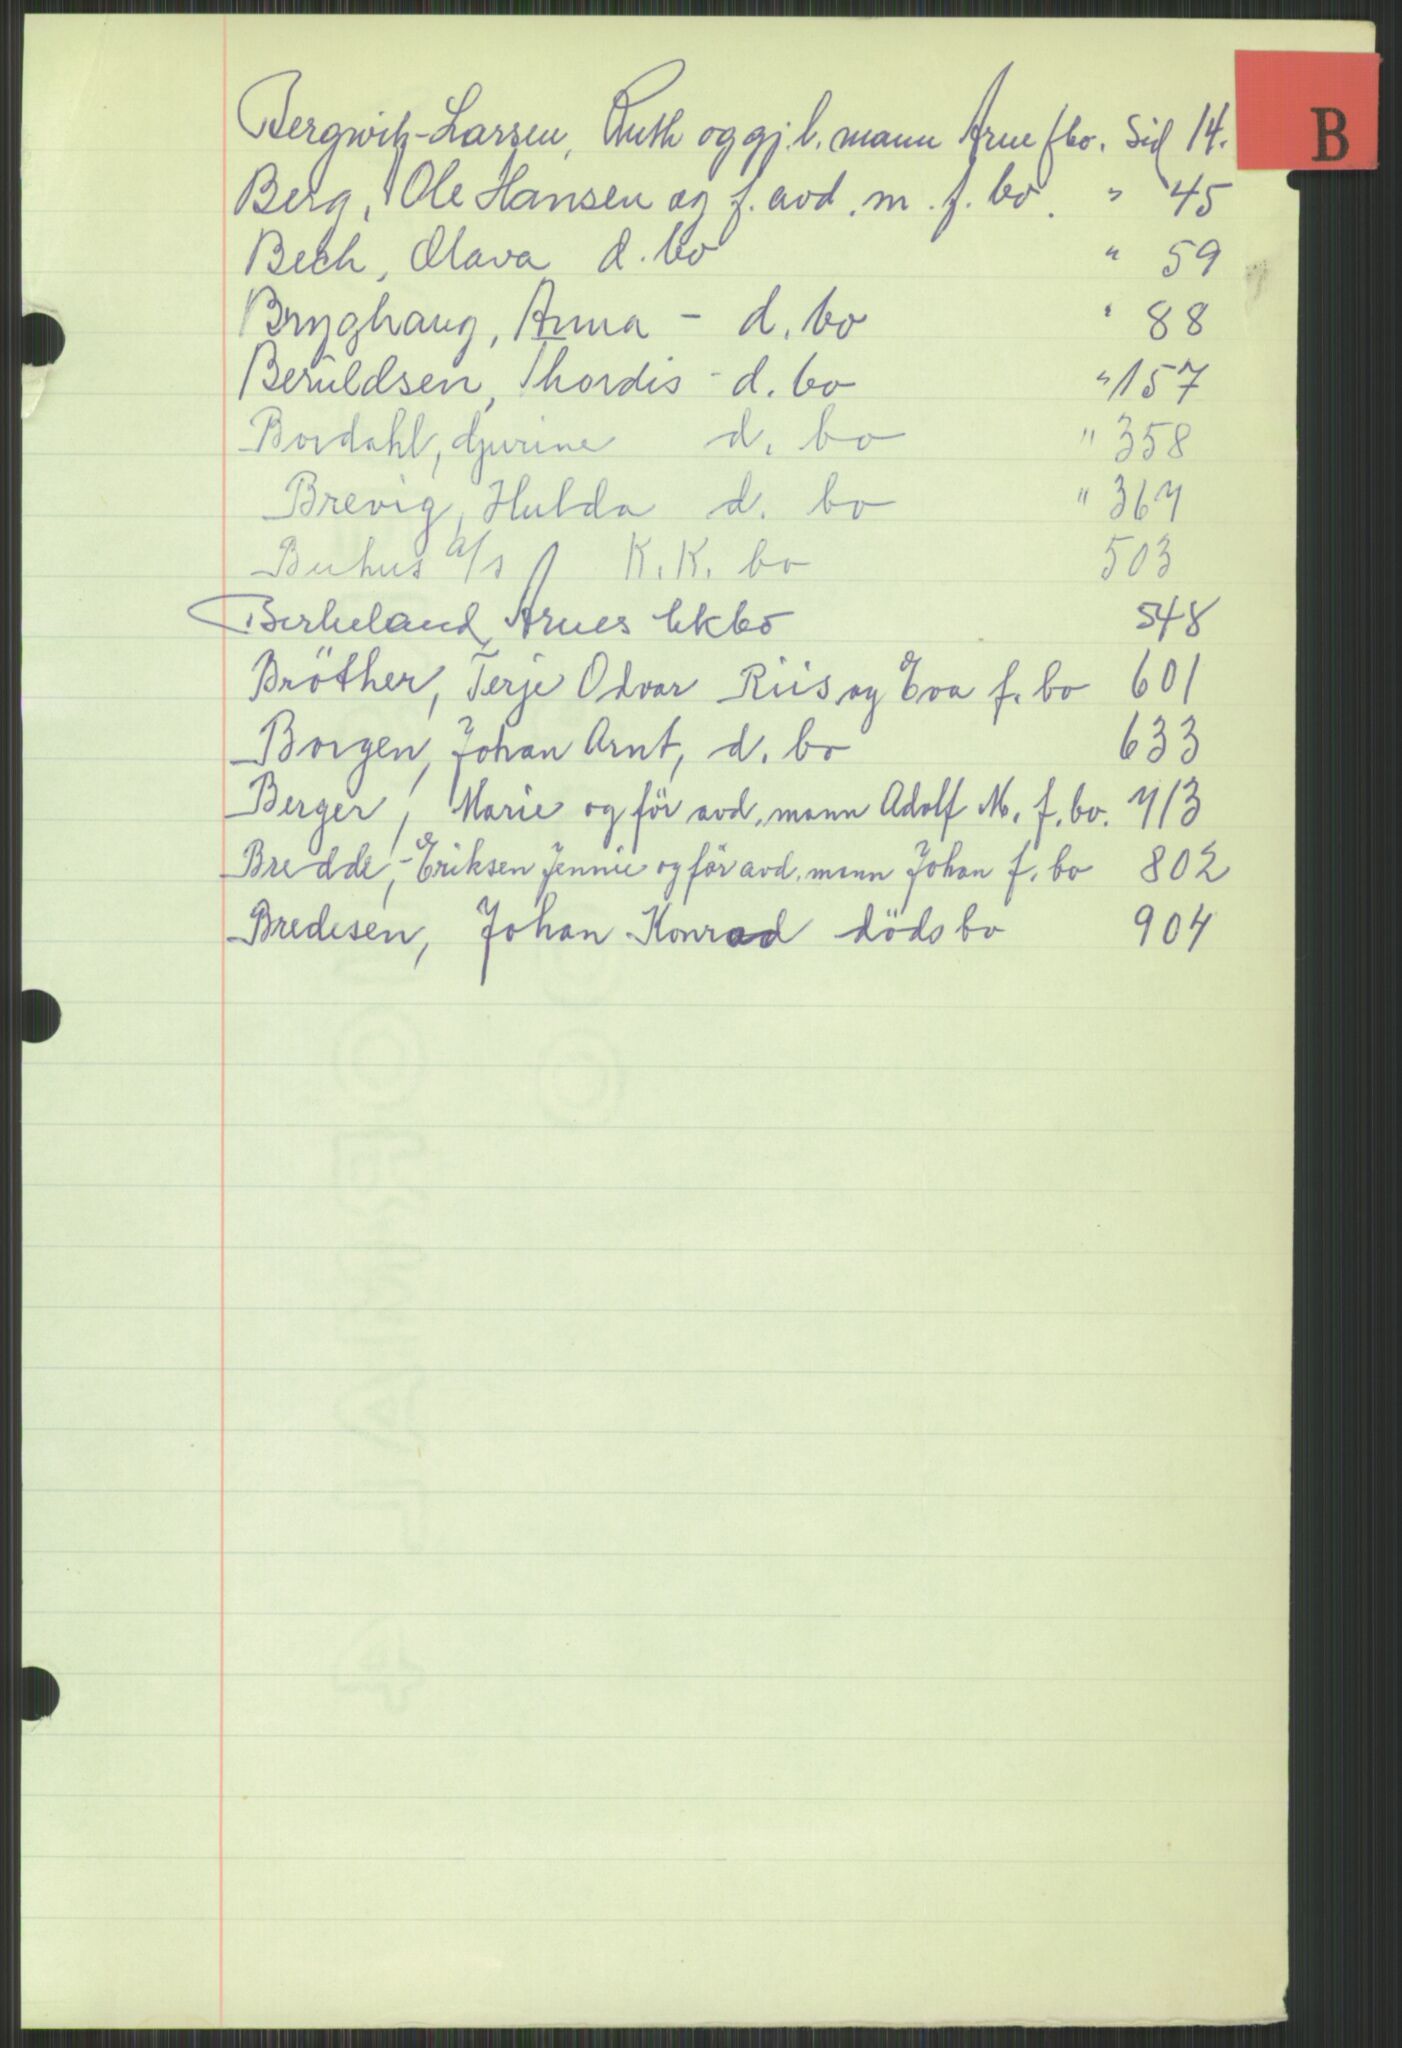 B
Bergwitz-Larsen, Ruth og gj.l. mann Arne fbo. Sid 14.
Berg, Ole Hansen og f. avd. m. f. bo. " 45
Bech, Olava d. bo " 59
Bryghaug, Anna - d. bo " 88
Beruldsen, Thordis - d. bo " 157
Bordahl, Gjurine d. bo " 358
Brevig, Hulda d. bo " 367
Buhus a/s K.K. bo 503
Birkeland, Arnes bo 548
Bröther, Terje Odvar Riis og Eva f. bo 601
Borgen, Johan Arnt, d. bo 633
Berger, Marie og för avd. mann Adolf M. f. bo. 713
Bredde,-Eriksen Jennie og för avd. mann Johan f. bo 802
Bredesen, Johan Konrad döds bo 904